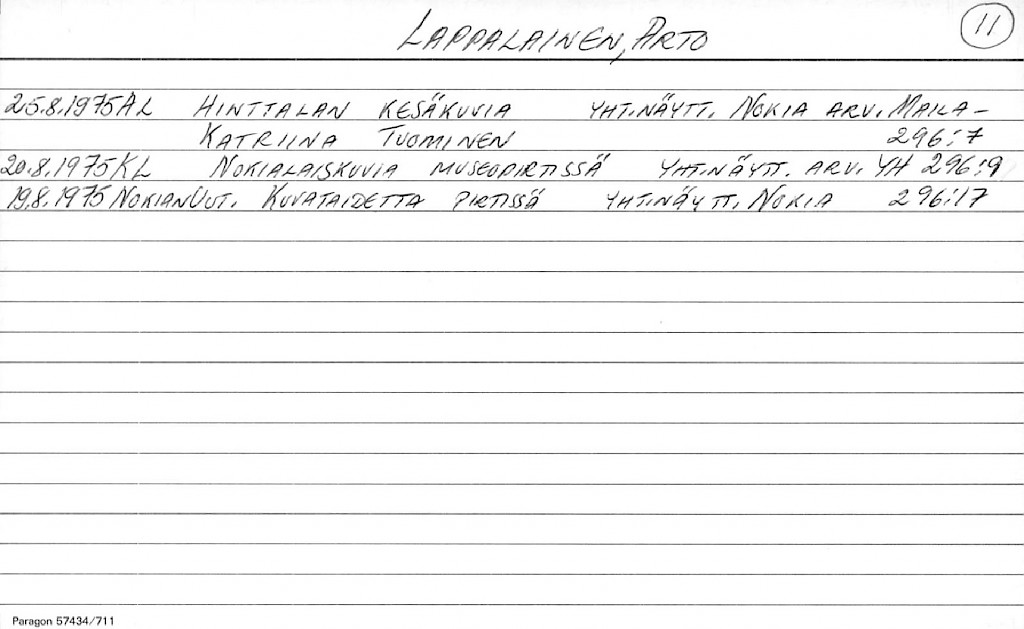 LAPPALAINEN, ARTO 11
25.8.1975 AL HINTTALAN KESÄKUVIA YHT.NÄYTT. NOKIA ARV. MAILA-
KATRIINA TUOMINEN 296:7
20.8.1975 KL NOKIALAISKUVIA MUSEOPIRTISSÄ YHT.NÄYTT. ARV. YH 296:9
19.8.1975 NOKIAN UUT. KUVATAIDETTA PIRTISSÄ YHT.NÄYTT. NOKIA 296:17
Paragon 57434/711